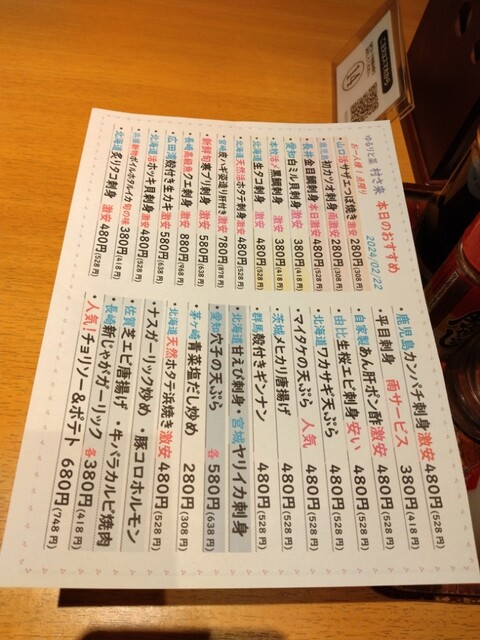 ゆるりと菜 村さ来 本日のおすすめ
2024/02/22
お一人様1点限り
・山口活サザエつぼ焼き激安 280円(308円)
・鹿児島初カツオ刺身雨激安 280円(308円)
・長井金目鯛刺身本日激安 480円(528円)
・愛知白ミル貝刺身 激安 380円(418円)
・本牧活〆黒鯛刺身 激安 380円(418円)
・北海道生タコ刺身 激安 480円(528円)
・北海道天然活ホタテ刺身 激安 480円(528円)
・宮崎皮ハギ姿造り肝付き激安 780円(878円)
・新鮮旬寒ブリ刺身 激安 580円(638円)
・長崎高級魚クエ刺身 激安 880円(968円)
・広田湾殻付き生カキ 激安 580円(638円)
・北海道活ホッキ貝刺身 激安 480円(528円)
・兵庫新物ボイルホタルイカ旬の味 380円(418円)
・北海道炙りタコ刺身 激安 480円(528円)
・鹿児島カンパチ刺身激安 480円(528円)
・平目刺身 雨サービス 380円(418円)
・自家製あん肝ポン酢激安 480円(528円)
・由比生桜エビ刺身安い 480円(528円)
・北海道ワカサギ天ぷら 480円(528円)
・マイタケの天ぷら 人気 480円(528円)
・茨城メヒカリ唐揚げ 480円(528円)
・群馬殻付きギンナン 480円(528円)
・北海道甘えび刺身・宮城ヤリイカ刺身
・愛知穴子の天ぷら 各580円(638円)
・茅ヶ崎青菜塩だし炒め 280円(308円)
・北海道天然ホタテ浜焼き激安 480円(528円)
・ナスガーリック炒め ・豚コロホルモン
・佐賀芝エビ唐揚げ ・牛バラカルビ焼肉
・長崎新じゃがガーリック 各380円(418円)
・人気!チョリソー&ポテト 680円(748円)
14